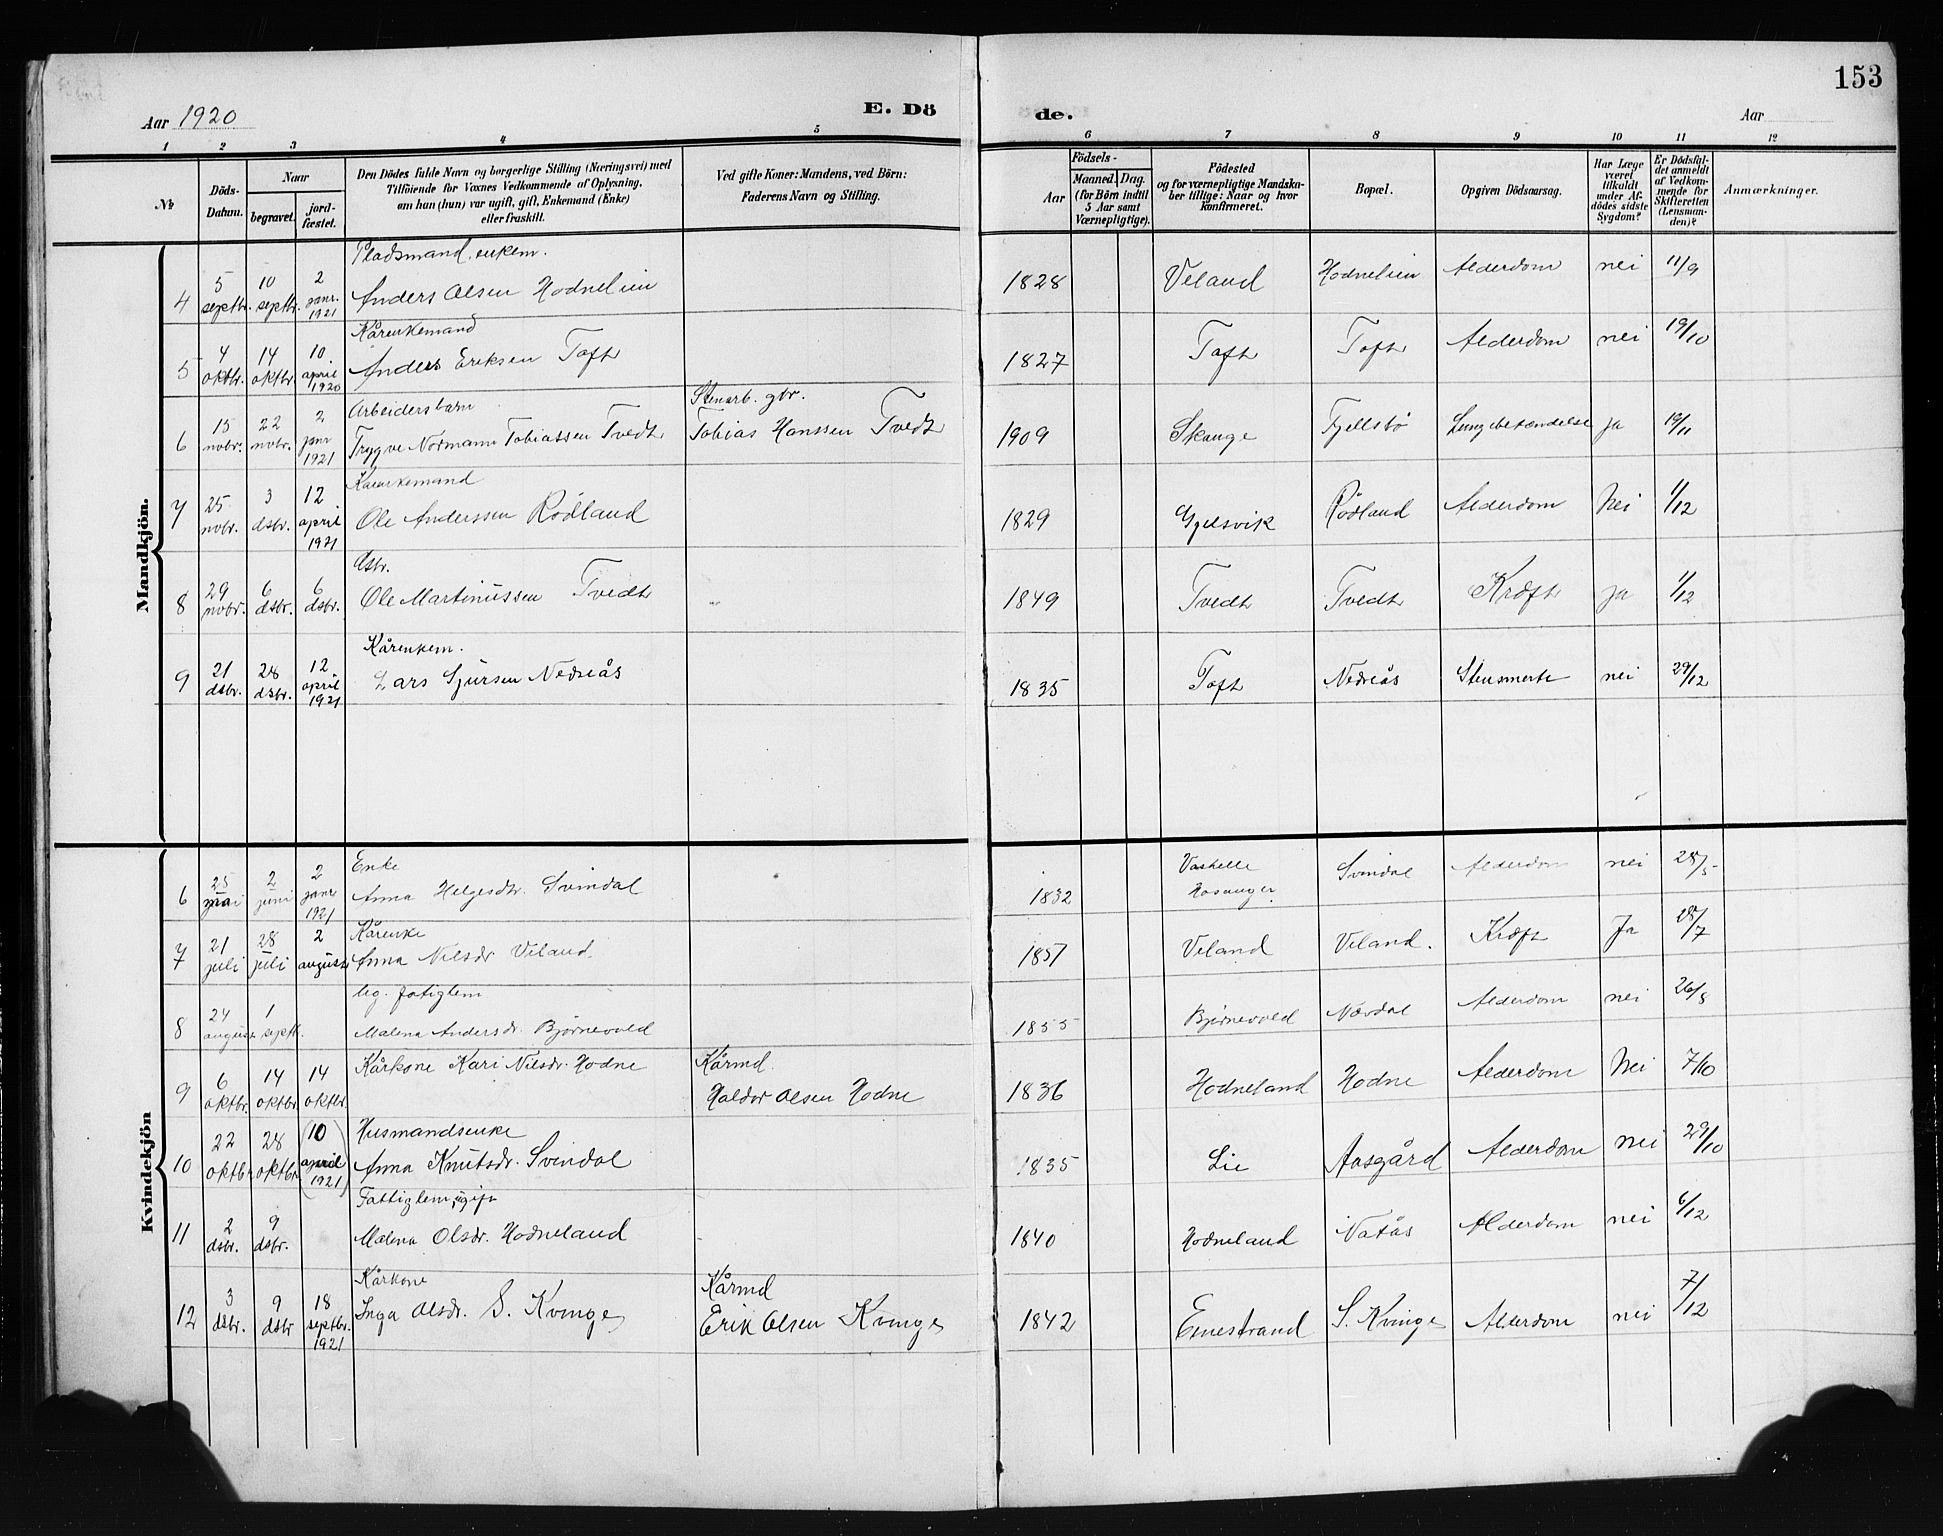 153
Aar 1920
E. Dö
de.
Aar
1 2 3 4 5 6 7 8 9 10 11 12
№
Döds-Datum.
Naar
begravet.
jord-fæstet.
Den Dödes fulde Navn og borgerlige Stilling (Næringsvei) med
Tilföiende for Voxnes Vedkommende af Oplysning,
om han (hun) var ugift, gift, Enkemand (Enke)
eller fraskilt.
Ved gifte Koner: Mandens, ved Börn:
Faderens Navn og Stilling.
Födsels-
Aar
Maaned. Dag.
(for Börn indtil
5 Aar samt
Værnepligtige).
Födested
og for værnepligtige Mandska-
ber tillige: Naar og hvor
konfirmeret.
Bopæl.
Opgiven Dödsaarsag.
Har Læge
været
tilkaldt
under Af-
dödes sidste
Sygdom?
Er Dödsfal-
det anmeldt
af Vedkom-
mende for
Skifteretten
(Lensman-
den)?
Anmærkninger.
Mandkjön.
Pladsmand, enkem.
4 5 septbr. 10 septbr. 2 janr. 1921 Anders Olsen Hodnelien 1828 Veland Hodnelien Alderdom nei 11/9
Kårenkemand
5 4 oktbr. 14 oktbr. 10 april 1920 Anders Eriksen Toft 1827 Toft Toft Alderdom nei 19/10
Arbeidersbarn Stenarb. gbr.
6 15 novbr. 22 novbr. 2 janr 1921 Trygve Normann Tobiassen Tvedt Tobias Hanssen Tvedt 1909 Skauge Fjellsbö Lungebetændelse ja 19/11
Kårenkemand
7 25 novbr. 3 dsbr. 12 april 1921 Ole Anderssen Rödland 1829 Gjelsvik Rödland Alderdom Nei 1/12
8 29 novbr. 6 dsbr. 6 dsbr. Ole Martinussen Tvedt 1849 Tvedt Tvedt Kræft ja 1/12
Kårenkem.
9 21 dsbr. 28 dsbr. 12 april 1921 Lars Sjursen Nedreås 1835 Toft Nedreås Stensmerte nei 29/12
Kvindekjön
Enke
6 25 mai 2 juni 2 janr 1921 Anna Helgesdtr. Svindal 1832 Hosanger Svindal Alderdom nei 28/5
Kårenke
7 21 juli 28 juli 2 august Anna Nilsdr Veland. 1857 Veland Veland. Kræft Ja 28/7
ug. fatiglem
8 24 august 1 septb. Malena Andersdr. Bjørnevold 1855 Bjørnevold Nævdal Alderdom nei 26/8
9 6 oktbr. 14 oktbr. 14 oktbr. Kårkone Kari Nilsdr. Hodne Kårmd. Haldor Olsen Hodne 1836 Hodneland Hodne Alderdom Nei 7/10
Husmandsenke
10 22 oktbr 28 oktbr (10 april 1921) Anna Knutsdr. Svindal 1835 Lie Aasgård Alderdom nei 29/10
Fattiglem, ugift
11 2 dsbr. 9 dsbr. Malena Olsdr. Hodneland 1840 Hodneland Natås Alderdom nei 6/12
Kårkone Kårmd
12 3 dsbr. 9 dsbr 18 septbr. 1921 Inga Olsdr. S. Kvinge Erik Olsen Kvinge 1842 Eknestrand S. Kvinge Alderdom nei 7/12